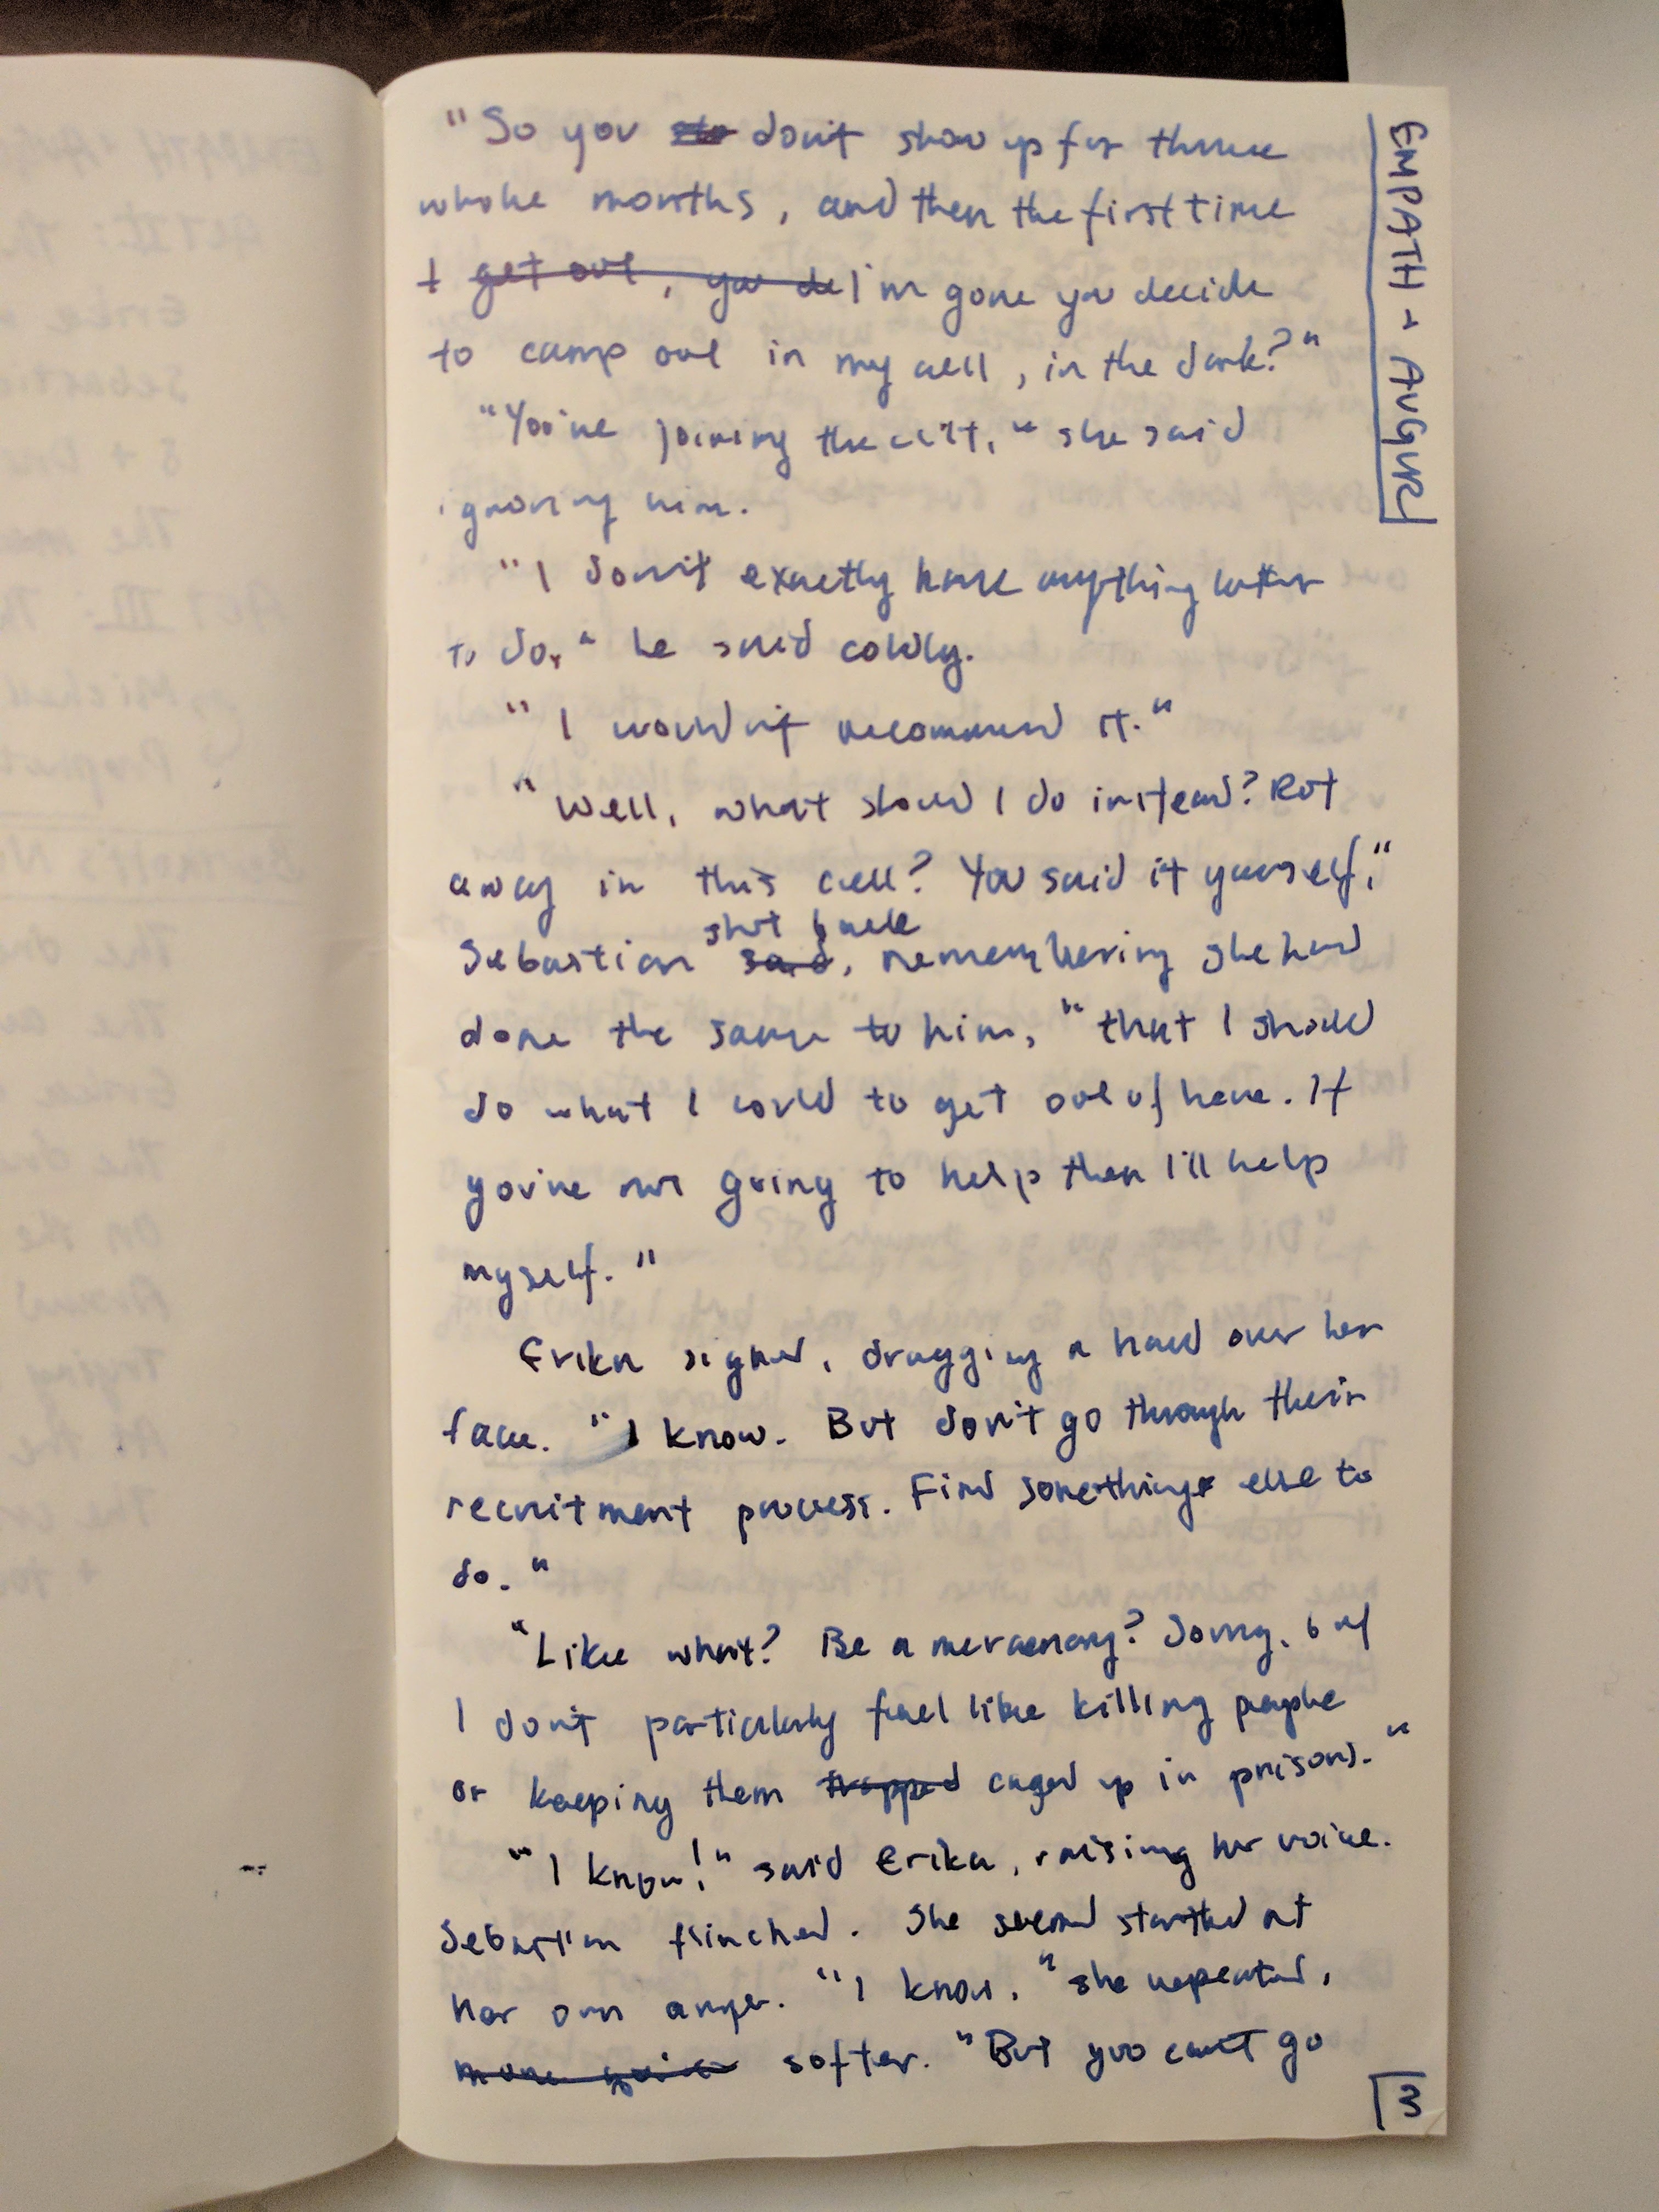 EMPATH - AUGUR
"So you don't show up for three
whole months, and then the first time
I get out, you de I'm gone you decide
to camp out in my cell, in the dark?"
"You're joining the cult," she said
ignoring him.
"I don't exactly have anything better
to do," he said coldly.
"I wouldn't recommend it."
"Well, what should I do instead? Rot
away in this cell? You said it yourself,"
shot back
Sebastian said, remembering she had
done the same to him, "that I should
do what I could to get out of here. If
you're not going to help then I'll help
myself."
Erika sighed, dragging a hand over her
face. "I know. But don't go through their
recruitment process. Find something else to
do."
"Like what? Be a mercenary? Sorry, but
I don't particularly feel like killing people
or keeping them trapped caged up in prisons."
"I know!" said Erika, raising her voice.
Sebastian flinched. She seemed startled at
her own anger. "I know," she repeated,
more softer. "But you can't go
3